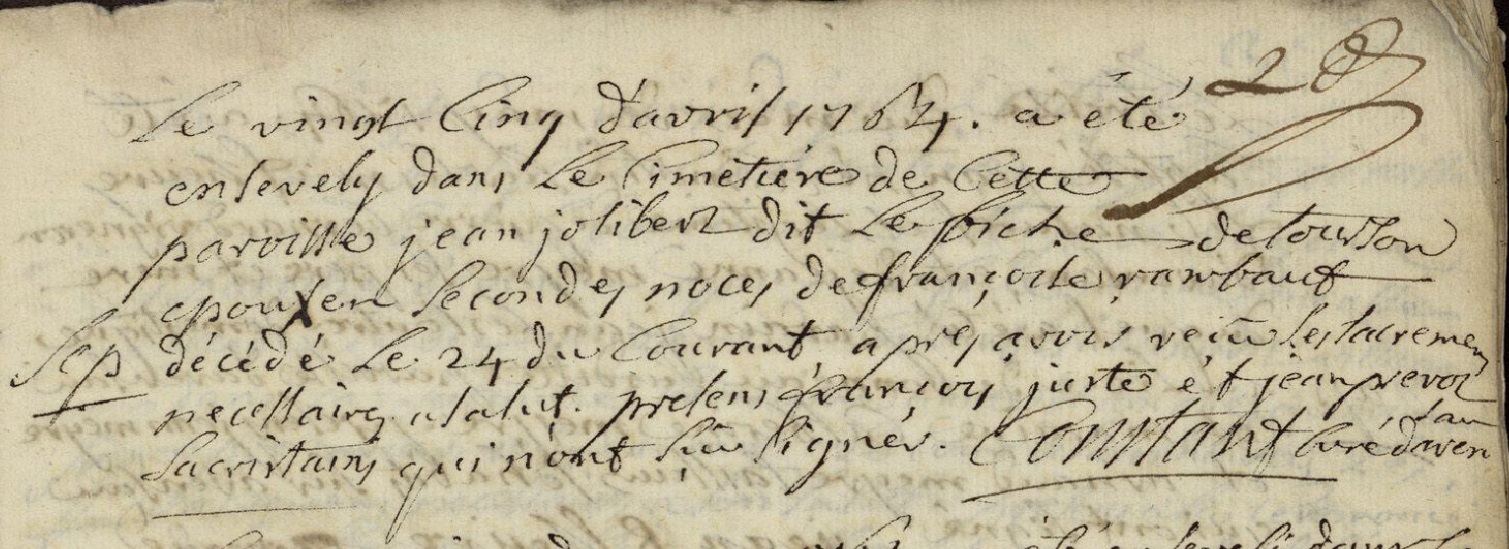 Le vingt cinq d'avril 1764. a été
ensevely dans le cimetiére de cette
paroisse jean jolibert dit le de tourson
epoux en secondes noces de françoise rambaut
Sep décédé le 24 du courant, apres avoir reçu les sacremens
necessaires a salut. presens françois juste ét jean prevot
sacristains qui n'ont sçu signer. Constant curé d'aven